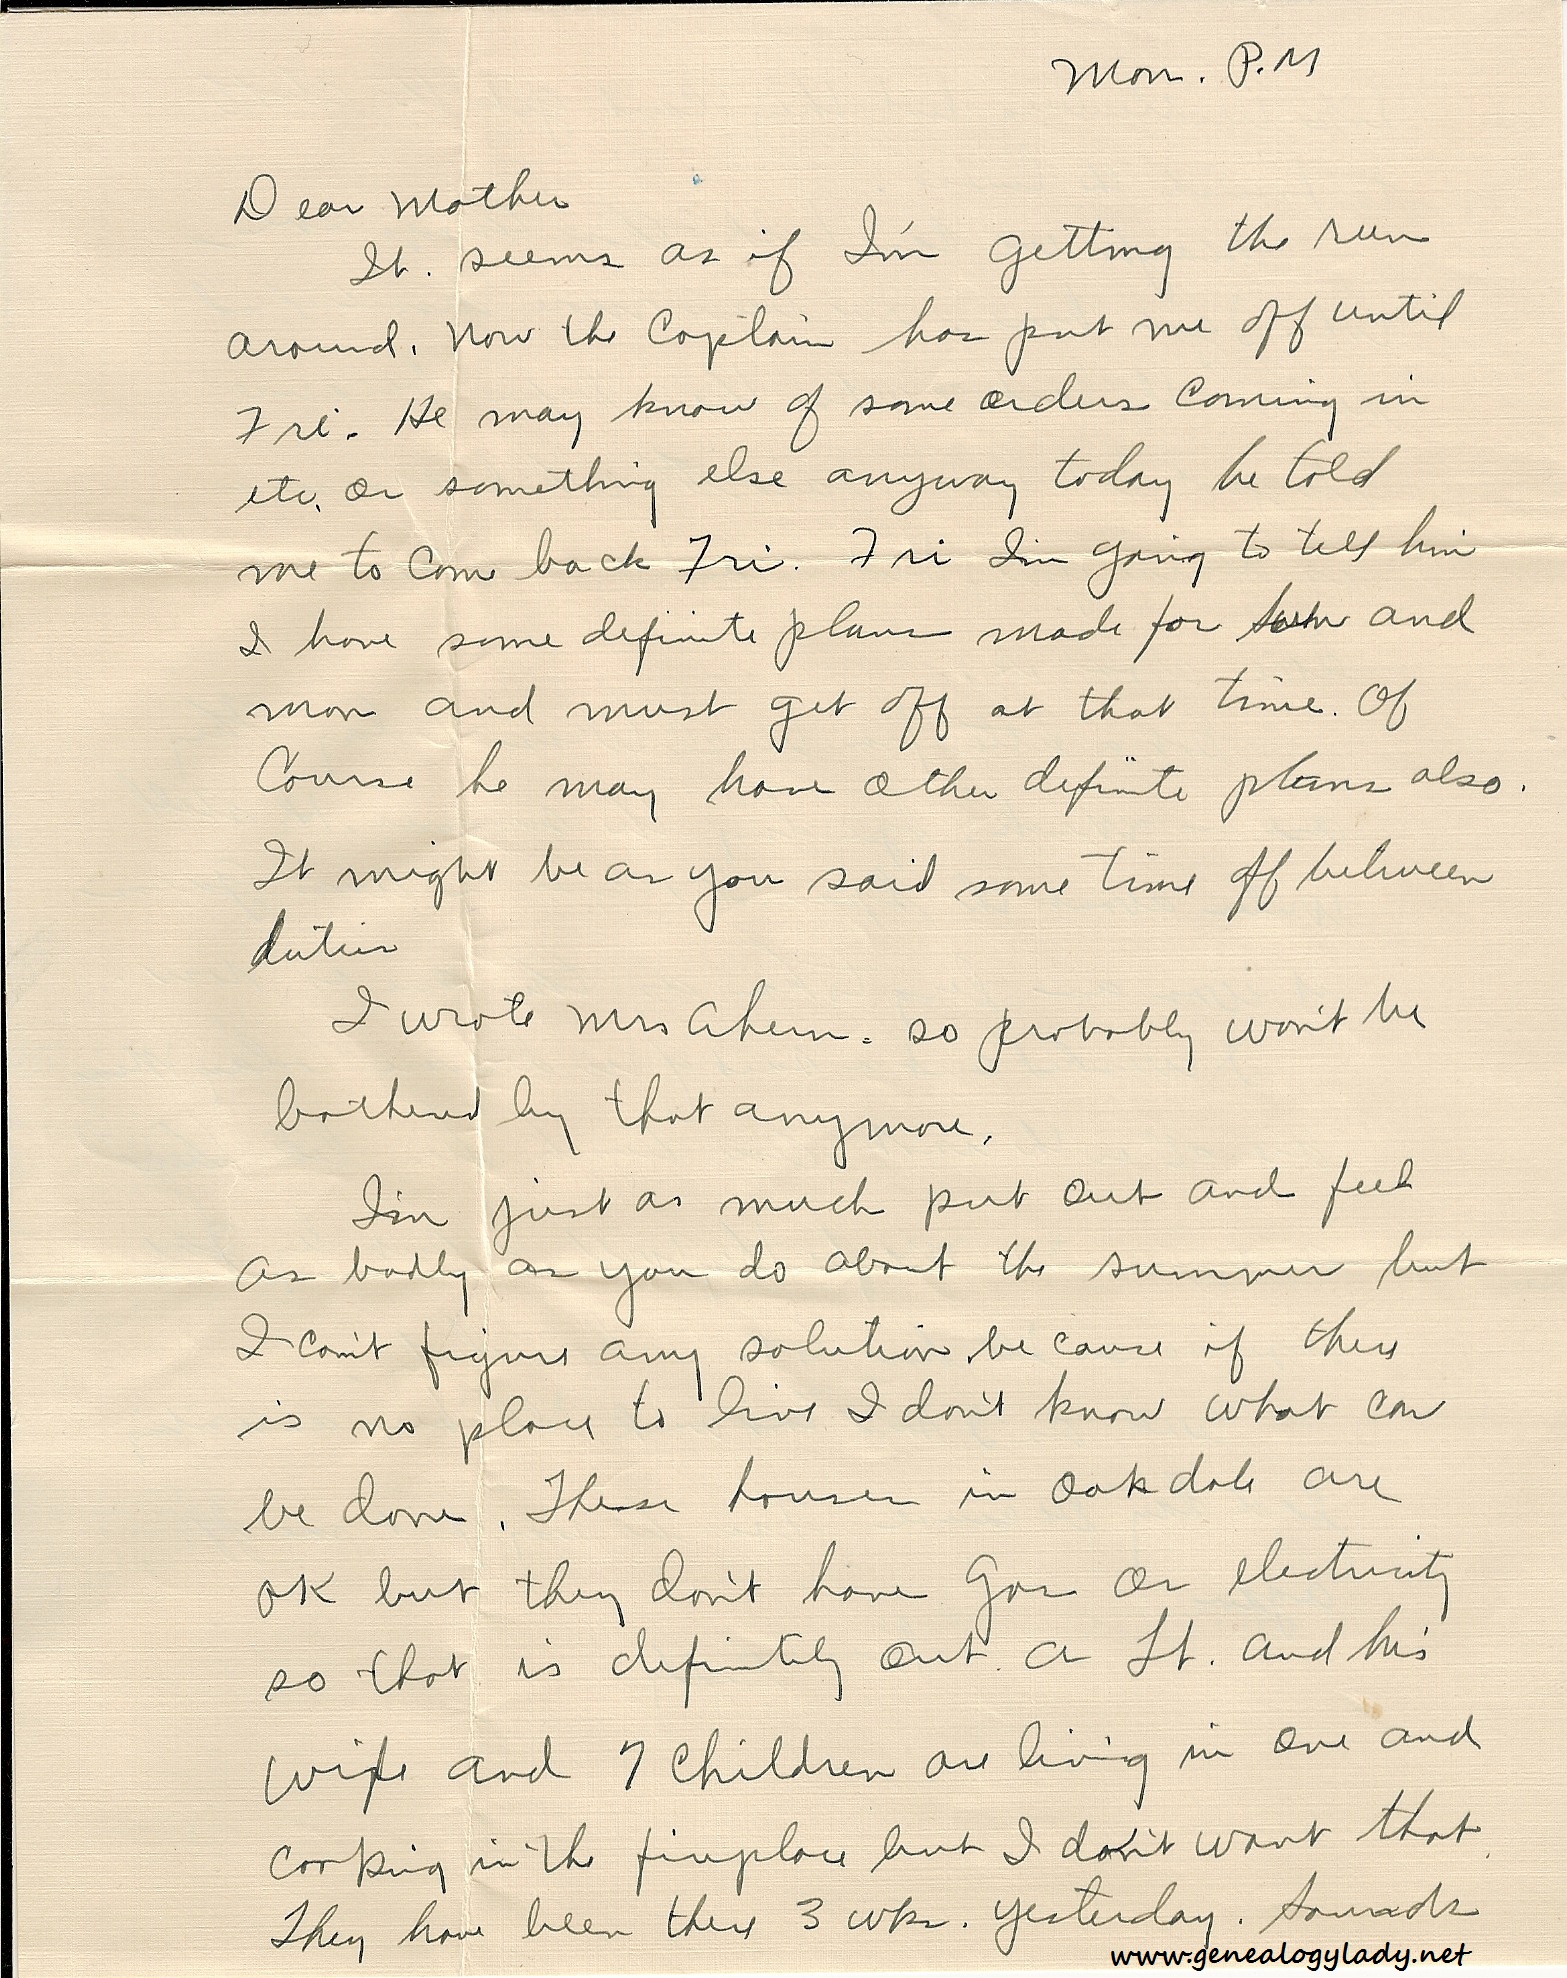 Mon. P.M
Dear Mother
It. seems as if I'm getting the run
around. Now the Captain has put me off until
Fri. He may know of some orders coming in
etc. or something else anyway today he told
me to come back Fri. Fri I'm going to tell him
I have some definite plans made for Sun and
mon and must get off at that time. Of
Course he may have other definite plans also.
It might be as you said some time off between
duties
I wrote Mrs Ahern. so probably won't be
bothered by that anymore.
I'm just as much put out and feel
as badly as you do about the summer but
I can't figure any solution, because if there
is no place to live I don't know what can
be done. These houses in Oakdale are
OK but they don't have gas or electricity
so that is definitely out. A Lt. and his
wife and 7 children are living in one and
cooking in the fireplace but I don't want that.
They have been there 3 wks. yesterday. Sounds
www.genealogylady.net